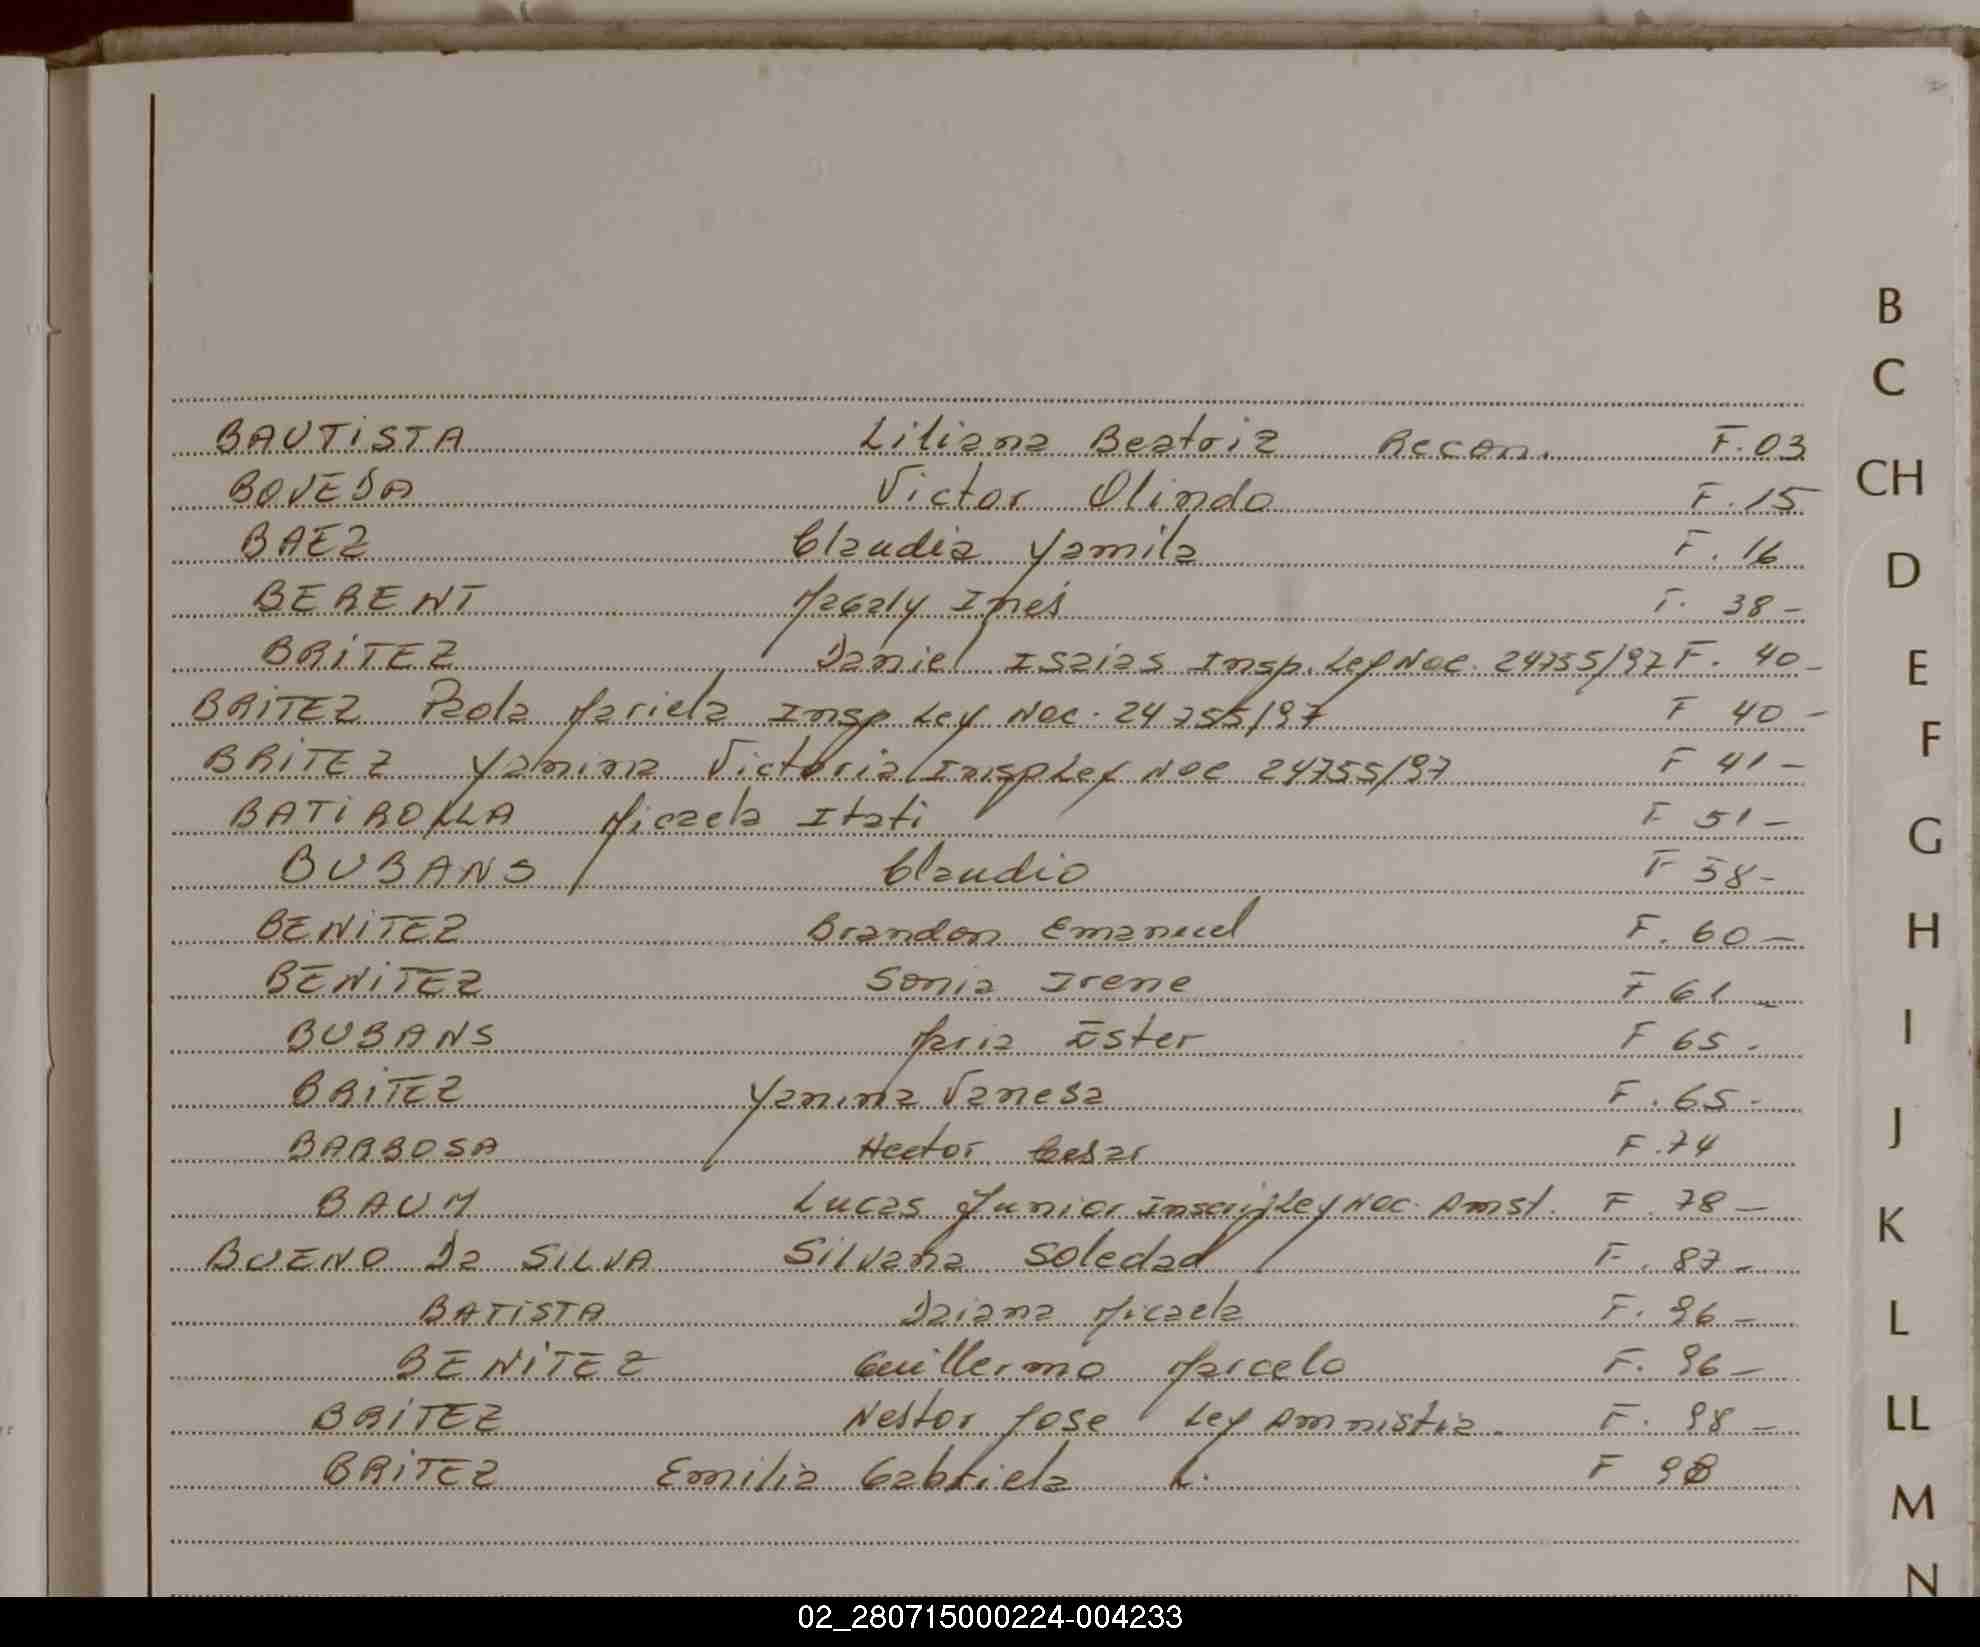 BAUTISTA Liliana Beatriz Recon. F. 03
BOVEDA Victor Olindo F. 15
BAEZ Claudia Yamila F. 16
BERENT Magaly Inés F. 38-
BRITEZ Daniel Isaias Insp. Ley Nac. 24755/97 F. 40-
BRITEZ Paola Mariela Insp Ley Nac. 24755/97 F 40-
BRITEZ Yanina Victoria Insp Ley Nac 24755/97 F 41-
BATIROLLA Micaela Itati F 51-
BUBANS Claudio F 58-
BENITEZ Brandon Emanuel F. 60-
BENITEZ Sonia Irene F 61-
BUBANS Maria Ester F 65-
BRITEZ Yanina Vanesa F. 65-
BARBOSA Hector Cesar F. 74
BAUM Lucas Junior Ley Nac. Amst. F. 78-
BUENO Da SILVA Silvana Soledad F. 87-
BATISTA Daiana Micaela F. 96-
BENITEZ Guillermo Marcelo F. 96-
BRITEZ Nestor Jose Ley Amnistia. F. 98-
BRITEZ Emilia Gabriela L. F 98
B
C
CH
D
E
F
G
H
I
J
K
L
LL
M
N
02_280715000224-004233